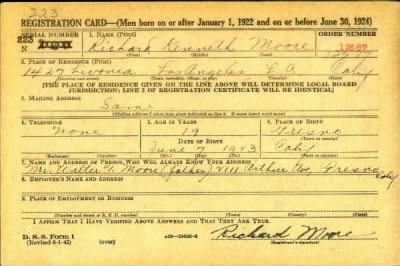 223
REGISTRATION CARD—(Men born on or after January 1, 1922 and on or before June 30, 1924)
SERIAL NUMBER 1. NAME (Print) ORDER NUMBER
223 Richard Kenneth Moore
2. PLACE OF RESIDENCE (Print)
1427 Livonia Los Angeles L.A. Calif
[THE PLACE OF RESIDENCE GIVEN ON THE LINE ABOVE WILL DETERMINE LOCAL BOARD
JURISDICTION; LINE 2 OF REGISTRATION CERTIFICATE WILL BE IDENTICAL]
3. MAILING ADDRESS
Same
4. TELEPHONE 5. AGE IN YEARS 6. PLACE OF BIRTH
None 19 Fresno
DATE OF BIRTH
June 7 1923 Calif
7. NAME AND ADDRESS OF PERSON WHO WILL ALWAYS KNOW YOUR ADDRESS
Mr. Walter Moore (father) Arthur Ave, Fresno Calif
8. EMPLOYER'S NAME AND ADDRESS
9. PLACE OF EMPLOYMENT OR BUSINESS
I AFFIRM THAT I HAVE VERIFIED ABOVE ANSWERS AND THAT THEY ARE TRUE.
D. S. S. Form 1
(Revised 6-1-42) (over) Richard Moore
(Registrant's signature)